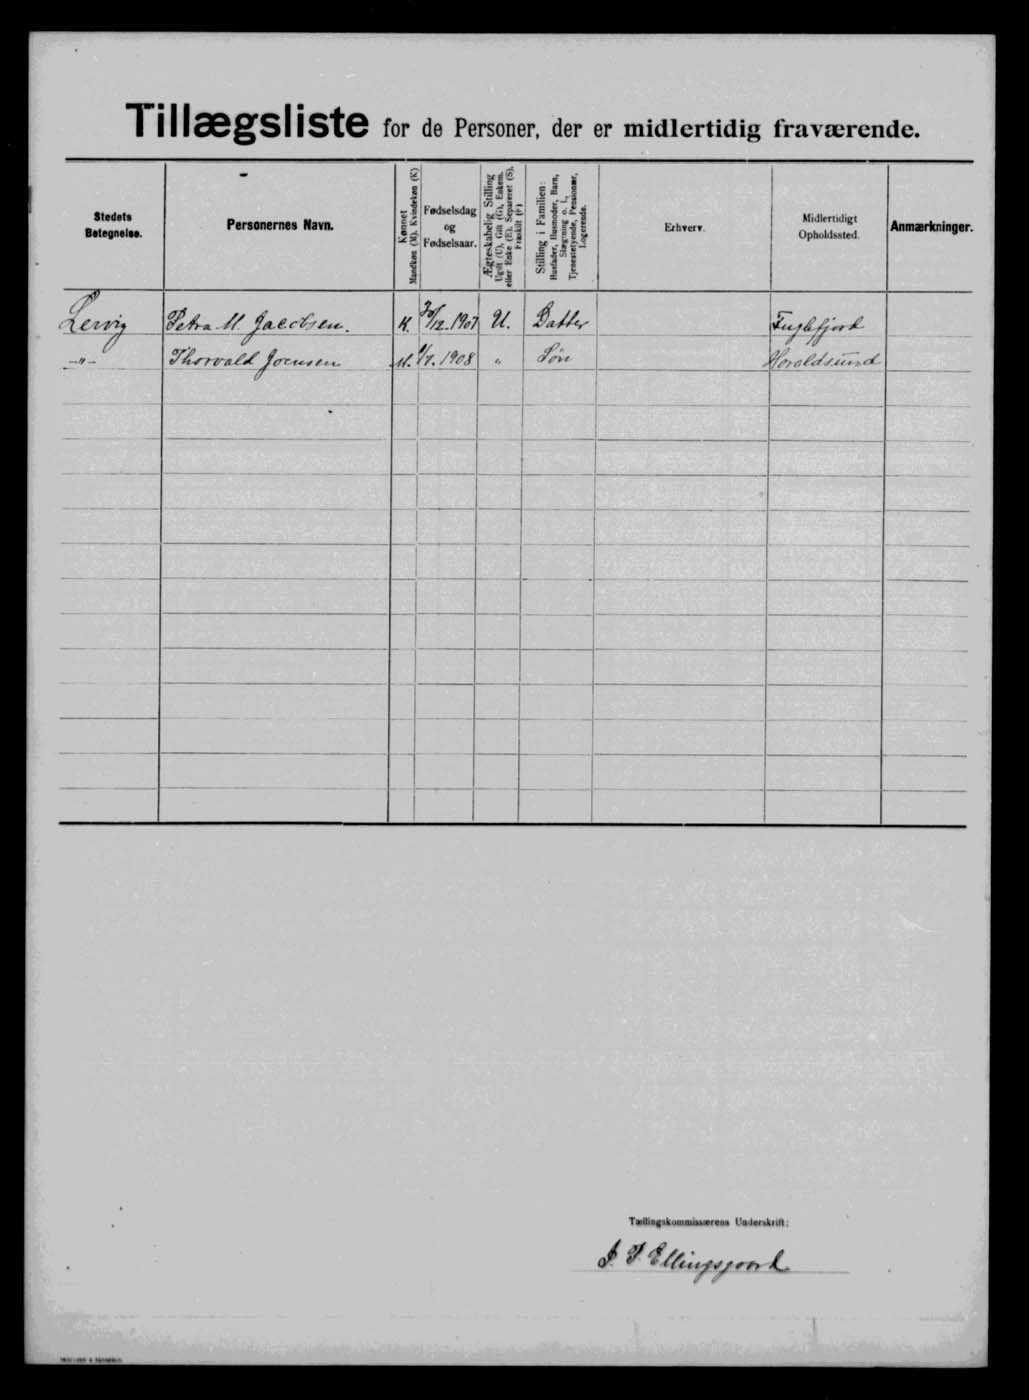 Tillægsliste for de Personer, der er midlertidig fraværende.
Stedets Betegnelse.
Personernes Navn.
Kønnet Mandkøn (M). Kvindekøn (K)
Fødselsdag og Fødselsaar.
Ægteskabelig Stilling Ugift (U), Gift (G), Enkem. eller Enke (E), Separeret (S). Fraskilt (F)
Stilling i Familien: Husfader, Husmoder, Barn, Slægtning o. l., Tjenestetyende, Pensionær, Logerende.
Erhverv.
Midlertidigt Opholdssted.
Anmærkninger.
Lervig Petra M. Jacobsen. K. 30/12. 1907 U. Datter Fuglefjord
-"- Thorvald Joensen M. 1/7. 1908 " Søn Haraldsund
Tællingskommissærens Underskrift:
J. P. Ellingsgaard